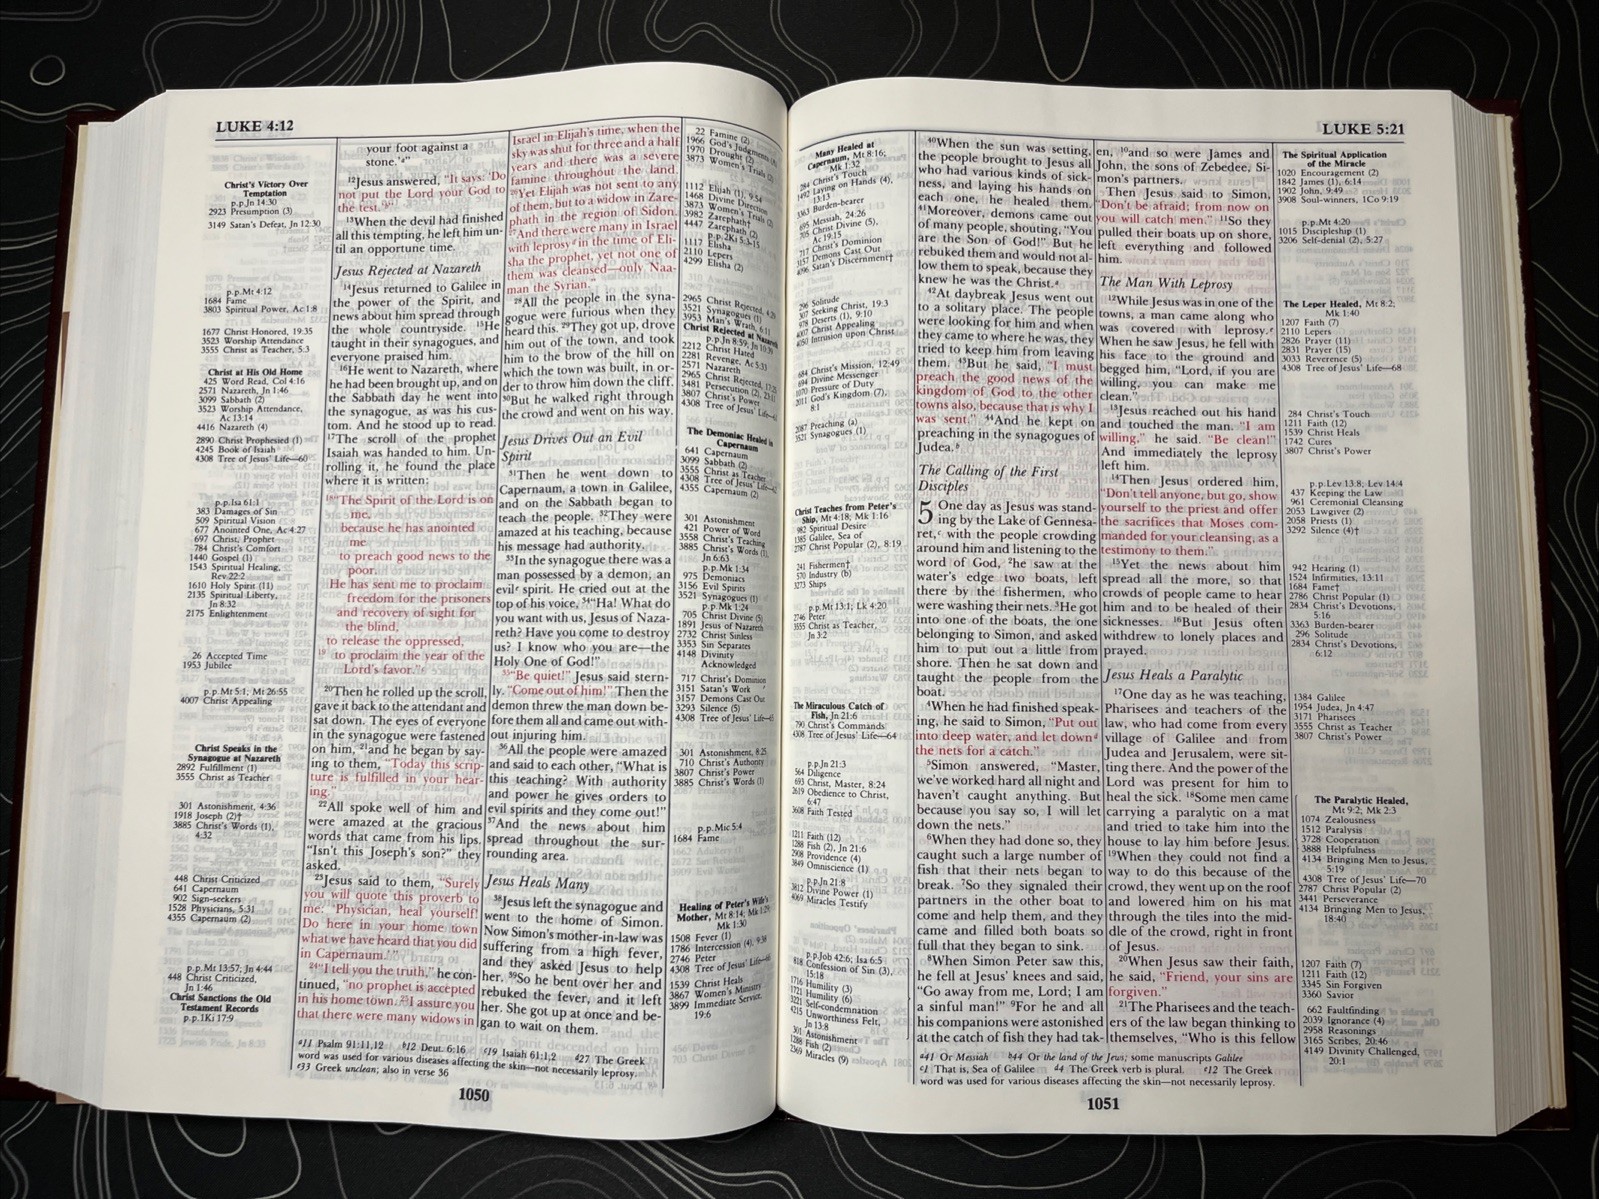 LUKE 4:12
Christ's Victory Over
Temptation
p.p.Jn 14:30
2923 Presumption (3)
3149 Satan's Defeat, Jn 12:30
p.p.Mt 4:12
1684 Fame
3803 Spiritual Power, Ac 1:8
1677 Christ Honored, 19:35
3523 Worship Attendance
3555 Christ as Teacher, 5:3
Christ at His Old Home
425 Word Read, Col 4:16
2571 Nazareth, Jn 1:46
3099 Sabbath (2)
3523 Worship Attendance,
Ac 13:14
4416 Nazareth (4)
2890 Christ Prophesied (1)
4245 Book of Isaiah
4308 Tree of Jesus' Life—60
p.p.Isa 61:1
383 Damages of Sin
509 Spiritual Vision
677 Anointed One, Ac 4:27
697 Christ, Prophet
784 Christ's Comfort
1440 Gospel (1)
1543 Spiritual Healing,
Rev 22:2
1610 Holy Spirit (11)
2135 Spiritual Liberty,
Jn 8:32
2175 Enlightenment
26 Accepted Time
1953 Jubilee
p.p.Mt 5:1; Mt 26:55
4007 Christ Appealing
Christ Speaks in the
Synagogue at Nazareth
2892 Fulfillment (1)
3555 Christ as Teacher
301 Astonishment, 4:36
1918 Joseph (2)†
3885 Christ's Words (1),
4:32
448 Christ Criticized
641 Capernaum
902 Sign-seekers
1528 Physicians, 5:31
4355 Capernaum (2)
p.p.Mt 13:57; Jn 4:44
448 Christ Criticized,
Jn 1:46
Christ Sanctions the Old
Testament Records
p.p.1Ki 17:9
your foot against a
stone.'ᵃ"
¹²Jesus answered, "It says: 'Do
not put the Lord your God to
the test.'ᵇ"
¹³When the devil had finished
all this tempting, he left him un-
til an opportune time.
Jesus Rejected at Nazareth
¹⁴Jesus returned to Galilee in
the power of the Spirit, and
news about him spread through
the whole countryside. ¹⁵He
taught in their synagogues, and
everyone praised him.
¹⁶He went to Nazareth, where
he had been brought up, and on
the Sabbath day he went into
the synagogue, as was his cus-
tom. And he stood up to read.
¹⁷The scroll of the prophet
Isaiah was handed to him. Un-
rolling it, he found the place
where it is written:
¹⁸"The Spirit of the Lord is on
me,
because he has anointed
me
to preach good news to the
poor.
He has sent me to proclaim
freedom for the prisoners
and recovery of sight for
the blind,
to release the oppressed,
¹⁹ to proclaim the year of the
Lord's favor."ᶜ
²⁰Then he rolled up the scroll,
gave it back to the attendant and
sat down. The eyes of everyone
in the synagogue were fastened
on him, ²¹and he began by say-
ing to them, "Today this scrip-
ture is fulfilled in your hear-
ing."
²²All spoke well of him and
were amazed at the gracious
words that came from his lips.
"Isn't this Joseph's son?" they
asked.
²³Jesus said to them, "Surely
you will quote this proverb to
me: 'Physician, heal yourself!
Do here in your home town
what we have heard that you did
in Capernaum.'"
²⁴"I tell you the truth," he con-
tinued, "no prophet is accepted
in his home town. ²⁵I assure you
that there were many widows in
Israel in Elijah's time, when the
sky was shut for three and a half
years and there was a severe
famine throughout the land.
²⁶Yet Elijah was not sent to any
of them, but to a widow in Zare-
phath in the region of Sidon.
²⁷And there were many in Israel
with leprosyᵈ in the time of Eli-
sha the prophet, yet not one of
them was cleansed—only Naa-
man the Syrian."
²⁸All the people in the syna-
gogue were furious when they
heard this. ²⁹They got up, drove
him out of the town, and took
him to the brow of the hill on
which the town was built, in or-
der to throw him down the cliff.
³⁰But he walked right through
the crowd and went on his way.
Jesus Drives Out an Evil
Spirit
³¹Then he went down to
Capernaum, a town in Galilee,
and on the Sabbath began to
teach the people. ³²They were
amazed at his teaching, because
his message had authority.
³³In the synagogue there was a
man possessed by a demon, an
evilᵉ spirit. He cried out at the
top of his voice, ³⁴"Ha! What do
you want with us, Jesus of Naza-
reth? Have you come to destroy
us? I know who you are—the
Holy One of God!"
³⁵"Be quiet!" Jesus said stern-
ly. "Come out of him!" Then the
demon threw the man down be-
fore them all and came out with-
out injuring him.
³⁶All the people were amazed
and said to each other, "What is
this teaching? With authority
and power he gives orders to
evil spirits and they come out!"
³⁷And the news about him
spread throughout the sur-
rounding area.
Jesus Heals Many
³⁸Jesus left the synagogue and
went to the home of Simon.
Now Simon's mother-in-law was
suffering from a high fever,
and they asked Jesus to help
her. ³⁹So he bent over her and
rebuked the fever, and it left
her. She got up at once and be-
gan to wait on them.
22 Famine (2)
1966 God's Judgments
1970 Drought (2)
3873 Women's Trials (2)
1112 Elijah (1), 9:54
1468 Divine Direction
3873 Women's Trials (2)
3982 Zarephath†
4447 Zarephath (2)
p.p.2Ki 5:3-15
1117 Elisha
2110 Lepers
4299 Elisha (2)
2965 Christ Rejected,
3521 Synagogues (1)
3953 Man's Wrath, 6:11
Christ Rejected at Nazareth
p.p.Jn 8:59; Jn 10:39
2212 Christ Hated
2281 Revenge, Ac 5:33
2571 Nazareth
2965 Christ Rejected,
3481 Persecution (2),
3807 Christ's Power
4308 Tree of Jesus' Life
The Demoniac Healed in
Capernaum
641 Capernaum
3099 Sabbath (2)
3555 Christ as Teacher
4308 Tree of Jesus' Life
4355 Capernaum (2)
301 Astonishment
421 Power of Word
3558 Christ's Teaching
3885 Christ's Words (1),
Jn 6:63
p.p.Mk 1:34
975 Demoniacs
3156 Evil Spirits
3521 Synagogues (1)
p.p.Mk 1:24
705 Christ Divine (5)
1891 Jesus of Nazareth
2732 Christ Sinless
3353 Sin Separates
4148 Divinity
Acknowledged
717 Christ's Dominion
3151 Satan's Work
3157 Demons Cast Out
3293 Silence (5)
4308 Tree of Jesus' Life
301 Astonishment, 8:25
710 Christ's Authority
3807 Christ's Power
3885 Christ's Words (1)
p.p.Mic 5:4
1684 Fame
Healing of Peter's Wife's
Mother, Mt 8:14; Mk 1:29
Mk 1:30
1508 Fever (1)
1786 Intercession (4), 9:38
2746 Peter
4308 Tree of Jesus' Life
1539 Christ Heals
3867 Women's Ministry
3899 Immediate Service,
19:6
ᵃ11 Psalm 91:11,12 ᵇ12 Deut. 6:16 ᶜ19 Isaiah 61:1,2 ᵈ27 The Greek
word was used for various diseases affecting the skin—not necessarily leprosy.
ᵉ33 Greek unclean; also in verse 36
1050
LUKE 5:21
Many Healed at
Capernaum, Mt 8:16;
Mk 1:32
284 Christ's Touch
1492 Laying on Hands (4),
13:13
3363 Burden-bearer
695 Messiah, 24:26
705 Christ Divine (5),
Ac 19:15
717 Christ's Dominion
3157 Demons Cast Out
4096 Satan's Discernment†
296 Solitude
307 Seeking Christ, 19:3
978 Deserts (1), 9:10
4007 Christ Appealing
4050 Intrusion upon Christ
684 Christ's Mission, 12:49
694 Divine Messenger
1070 Pressure of Duty
2011 God's Kingdom (7),
8:1
2087 Preaching (a)
3521 Synagogues (1)
Christ Teaches from Peter's
Ship, Mt 4:18; Mk 1:16
982 Spiritual Desire
1385 Galilee, Sea of
2787 Christ Popular (2), 8:19
241 Fishermen†
570 Industry (b)
3273 Ships
p.p.Mt 13:1; Lk 4:20
2746 Peter
3555 Christ as Teacher,
Jn 3:2
The Miraculous Catch of
Fish, Jn 21:6
790 Christ's Commands
4308 Tree of Jesus' Life—64
p.p.Jn 21:3
564 Diligence
693 Christ, Master, 8:24
2619 Obedience to Christ,
6:47
3608 Faith Tested
1211 Faith (12)
1288 Fish (2), Jn 21:6
2908 Providence (4)
3849 Omniscience (1)
p.p.Jn 21:8
3812 Divine Power (1)
4069 Miracles Testify
p.p.Job 42:6; Isa 6:5
818 Confession of Sin (3),
15:18
1716 Humility (3)
1721 Humility (6)
3221 Self-condemnation
4215 Unworthiness Felt,
Jn 13:8
301 Astonishment
1288 Fish (2)
2369 Miracles (9)
⁴⁰When the sun was setting,
the people brought to Jesus all
who had various kinds of sick-
ness, and laying his hands on
each one, he healed them.
⁴¹Moreover, demons came out
of many people, shouting, "You
are the Son of God!" But he
rebuked them and would not al-
low them to speak, because they
knew he was the Christ.ᵃ
⁴²At daybreak Jesus went out
to a solitary place. The people
were looking for him and when
they came to where he was, they
tried to keep him from leaving
them. ⁴³But he said, "I must
preach the good news of the
kingdom of God to the other
towns also, because that is why I
was sent." ⁴⁴And he kept on
preaching in the synagogues of
Judea.ᵇ
The Calling of the First
Disciples
5 One day as Jesus was stand-
ing by the Lake of Gennesa-
ret,ᶜ with the people crowding
around him and listening to the
word of God, ²he saw at the
water's edge two boats, left
there by the fishermen, who
were washing their nets. ³He got
into one of the boats, the one
belonging to Simon, and asked
him to put out a little from
shore. Then he sat down and
taught the people from the
boat.
⁴When he had finished speak-
ing, he said to Simon, "Put out
into deep water, and let downᵈ
the nets for a catch."
⁵Simon answered, "Master,
we've worked hard all night and
haven't caught anything. But
because you say so, I will let
down the nets."
⁶When they had done so, they
caught such a large number of
fish that their nets began to
break. ⁷So they signaled their
partners in the other boat to
come and help them, and they
came and filled both boats so
full that they began to sink.
⁸When Simon Peter saw this,
he fell at Jesus' knees and said,
"Go away from me, Lord; I am
a sinful man!" ⁹For he and all
his companions were astonished
at the catch of fish they had tak-
en, ¹⁰and so were James and
John, the sons of Zebedee, Si-
mon's partners.
Then Jesus said to Simon,
"Don't be afraid; from now on
you will catch men." ¹¹So they
pulled their boats up on shore,
left everything and followed
him.
The Man With Leprosy
¹²While Jesus was in one of the
towns, a man came along who
was covered with leprosy.ᵉ
When he saw Jesus, he fell with
his face to the ground and
begged him, "Lord, if you are
willing, you can make me
clean."
¹³Jesus reached out his hand
and touched the man. "I am
willing," he said. "Be clean!"
And immediately the leprosy
left him.
¹⁴Then Jesus ordered him,
"Don't tell anyone, but go, show
yourself to the priest and offer
the sacrifices that Moses com-
manded for your cleansing, as a
testimony to them."
¹⁵Yet the news about him
spread all the more, so that
crowds of people came to hear
him and to be healed of their
sicknesses. ¹⁶But Jesus often
withdrew to lonely places and
prayed.
Jesus Heals a Paralytic
¹⁷One day as he was teaching,
Pharisees and teachers of the
law, who had come from every
village of Galilee and from
Judea and Jerusalem, were sit-
ting there. And the power of the
Lord was present for him to
heal the sick. ¹⁸Some men came
carrying a paralytic on a mat
and tried to take him into the
house to lay him before Jesus.
¹⁹When they could not find a
way to do this because of the
crowd, they went up on the roof
and lowered him on his mat
through the tiles into the mid-
dle of the crowd, right in front
of Jesus.
²⁰When Jesus saw their faith,
he said, "Friend, your sins are
forgiven."
²¹The Pharisees and the teach-
ers of the law began thinking to
themselves, "Who is this fellow
The Spiritual Application
of the Miracle
1020 Encouragement (2)
1842 James (1), 6:14
1902 John, 9:49
3908 Soul-winners, 1Co 9:19
p.p.Mt 4:20
1015 Discipleship (1)
3206 Self-denial (2), 5:27
The Leper Healed, Mt 8:2;
Mk 1:40
1207 Faith (7)
2110 Lepers
2826 Prayer (11)
2831 Prayer (15)
3033 Reverence (5)
4308 Tree of Jesus' Life—68
284 Christ's Touch
1211 Faith (12)
1539 Christ Heals
1742 Cures
3807 Christ's Power
p.p.Lev 13:8; Lev 14:4
437 Keeping the Law
961 Ceremonial Cleansing
2053 Lawgiver (2)
2058 Priests (1)
3292 Silence (4)†
942 Hearing (1)
1524 Infirmities, 13:11
1684 Fame†
2786 Christ Popular (1)
2834 Christ's Devotions,
5:16
3363 Burden-bearer
296 Solitude
2834 Christ's Devotions,
6:12
1384 Galilee
1954 Judea, Jn 4:47
3171 Pharisees
3555 Christ as Teacher
3807 Christ's Power
The Paralytic Healed,
Mt 9:2; Mk 2:3
1074 Zealousness
1512 Paralysis
3728 Cooperation
3888 Helpfulness
4134 Bringing Men to Jesus,
5:19
4308 Tree of Jesus' Life—70
2787 Christ Popular (2)
3441 Perseverance
4134 Bringing Men to Jesus,
18:40
1207 Faith (7)
1211 Faith (12)
3345 Sin Forgiven
3360 Savior
662 Faultfinding
2039 Ignorance (4)
2958 Reasonings
3165 Scribes, 20:46
4149 Divinity Challenged,
20:1
ᵃ41 Or Messiah ᵇ44 Or the land of the Jews; some manuscripts Galilee
ᶜ1 That is, Sea of Galilee ᵈ4 The Greek verb is plural. ᵉ12 The Greek
word was used for various diseases affecting the skin—not necessarily leprosy.
1051